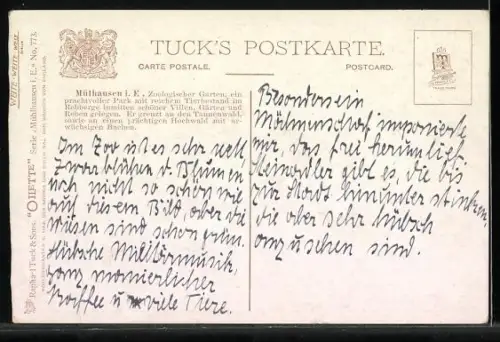 TUCK'S POSTKARTE.
CARTE POSTALE.
POSTCARD.
Mülhausen i. E., Zoologischer Garten, ein
prachtvoller Park mit reichem Tierbestand im
Rebberge inmitten schöner Villen, Gärten und
Reben gelegen. Er grenzt an den Tannenwald,
sowie an einen prächtigen Hochwald mit ur-
wüchsigen Buchen.
Im Zoo ist es sehr nett
Zwar blühen d. Blumen
noch nicht so schön wie
auf diesem Bild, aber die
Wiesen sind schon grün.
Hübsche Militärmusik,
ganz manierlicher
Kaffee u. viele Tiere.
Besonders ein
Mähnenschaf imponierte
mir, das frei herumlief.
Steinadler gibt es, die bis
zur Stadt hinunter stinken,
die aber sehr hübsch
anzusehen sind.
Raphael Tuck & Sons. "OILETTE" Serie «Mülhausen i. E.» No. 773.